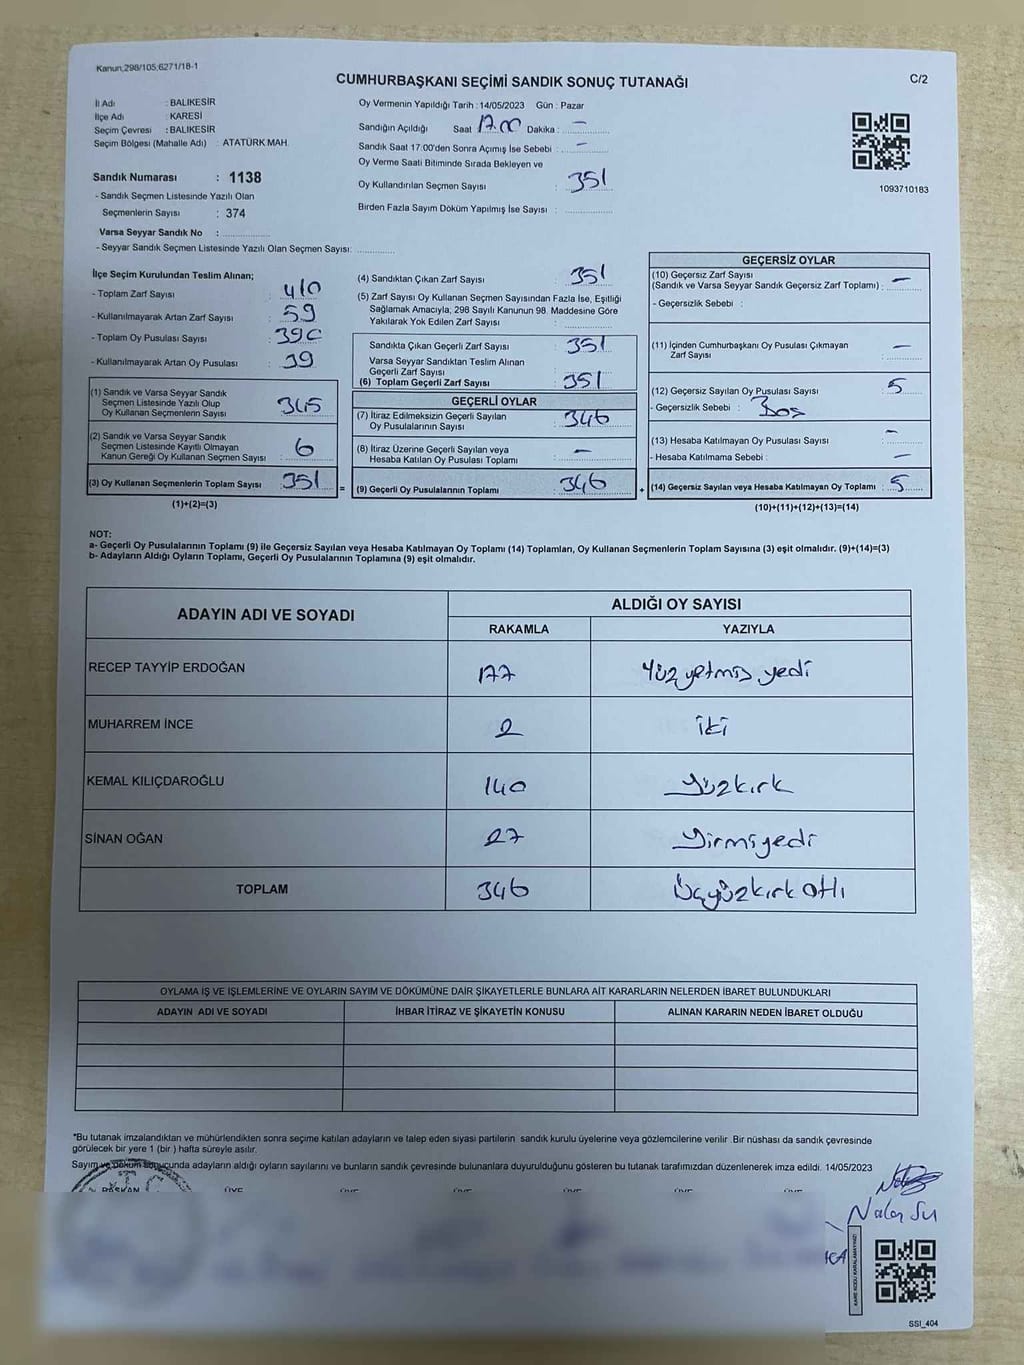 Kanun,298/105;6271/18-1
CUMHURBAŞKANI SEÇİMİ SANDIK SONUÇ TUTANAĞI
C/2
İl Adı : BALIKESİR
İlçe Adı : KARESİ
Seçim Çevresi : BALIKESİR
Seçim Bölgesi (Mahalle Adı) : ATATÜRK MAH.
Sandık Numarası : 1138
- Sandık Seçmen Listesinde Yazılı Olan
Seçmenlerin Sayısı : 374
Varsa Seyyar Sandık No :
- Seyyar Sandık Seçmen Listesinde Yazılı Olan Seçmen Sayısı:
Oy Vermenin Yapıldığı Tarih : 14/05/2023 Gün : Pazar
Sandığın Açıldığı Saat 17.00 Dakika : —
Sandık Saat 17:00'den Sonra Açımış İse Sebebi : —
Oy Verme Saati Bitiminde Sırada Bekleyen ve
Oy Kullandırılan Seçmen Sayısı : 351
Birden Fazla Sayım Döküm Yapılmış İse Sayısı :
1093710183
İlçe Seçim Kurulundan Teslim Alınan;
- Toplam Zarf Sayısı : 410
- Kullanılmayarak Artan Zarf Sayısı : 59
- Toplam Oy Pusulası Sayısı : 390
- Kullanılmayarak Artan Oy Pusulası : 39
(1) Sandık ve Varsa Seyyar Sandık
Seçmen Listesinde Yazılı Olup
Oy Kullanan Seçmenlerin Sayısı : 345
(2) Sandık ve Varsa Seyyar Sandık
Seçmen Listesinde Kayıtlı Olmayan
Kanun Gereği Oy Kullanan Seçmen Sayısı : 6
(3) Oy Kullanan Seçmenlerin Toplam Sayısı : 351
(1)+(2)=(3)
(4) Sandıktan Çıkan Zarf Sayısı : 351
(5) Zarf Sayısı Oy Kullanan Seçmen Sayısından Fazla İse, Eşitliği
Sağlamak Amacıyla; 298 Sayılı Kanunun 98. Maddesine Göre
Yakılarak Yok Edilen Zarf Sayısı :
Sandıkta Çıkan Geçerli Zarf Sayısı : 351
Varsa Seyyar Sandıktan Teslim Alınan
Geçerli Zarf Sayısı :
(6) Toplam Geçerli Zarf Sayısı : 351
GEÇERLİ OYLAR
(7) İtiraz Edilmeksizin Geçerli Sayılan
Oy Pusulalarının Sayısı : 346
(8) İtiraz Üzerine Geçerli Sayılan veya
Hesaba Katılan Oy Pusulası Toplamı : —
= (9) Geçerli Oy Pusulalarının Toplamı : 346
GEÇERSİZ OYLAR
(10) Geçersiz Zarf Sayısı
(Sandık ve Varsa Seyyar Sandık Geçersiz Zarf Toplamı) : —
- Geçersizlik Sebebi :
(11) İçinden Cumhurbaşkanı Oy Pusulası Çıkmayan
Zarf Sayısı : —
(12) Geçersiz Sayılan Oy Pusulası Sayısı : 5
- Geçersizlik Sebebi : Boş
(13) Hesaba Katılmayan Oy Pusulası Sayısı : —
- Hesaba Katılmama Sebebi : —
+ (14) Geçersiz Sayılan veya Hesaba Katılmayan Oy Toplamı : 5
(10)+(11)+(12)+(13)=(14)
NOT:
a- Geçerli Oy Pusulalarının Toplamı (9) ile Geçersiz Sayılan veya Hesaba Katılmayan Oy Toplamı (14) Toplamları, Oy Kullanan Seçmenlerin Toplam Sayısına (3) eşit olmalıdır. (9)+(14)=(3)
b- Adayların Aldığı Oyların Toplamı, Geçerli Oy Pusulalarının Toplamına (9) eşit olmalıdır.
ADAYIN ADI VE SOYADI
ALDIĞI OY SAYISI
RAKAMLA YAZIYLA
RECEP TAYYİP ERDOĞAN 177 Yüz yetmiş yedi
MUHARREM İNCE 2 iki
KEMAL KILIÇDAROĞLU 140 Yüzkırk
SİNAN OĞAN 27 Yirmiyedi
TOPLAM 346 Üçyüzkırk altı
OYLAMA İŞ VE İŞLEMLERİNE VE OYLARIN SAYIM VE DÖKÜMÜNE DAİR ŞİKAYETLERLE BUNLARA AİT KARARLARIN NELERDEN İBARET BULUNDUKLARI
ADAYIN ADI VE SOYADI İHBAR İTİRAZ VE ŞİKAYETİN KONUSU ALINAN KARARIN NEDEN İBARET OLDUĞU
*Bu tutanak imzalandıktan ve mühürlendikten sonra seçime katılan adayların ve talep eden siyasi partilerin sandık kurulu üyelerine veya gözlemcilerine verilir .Bir nüshası da sandık çevresinde
görülecek bir yere 1 (bir ) hafta süreyle asılır.
Sayım ve döküm sonucunda adayların aldığı oyların sayılarını ve bunların sandık çevresinde bulunanlara duyurulduğunu gösteren bu tutanak tarafımızdan düzenlenerek imza edildi. 14/05/2023
BAŞKAN ÜYE ÜYE ÜYE ÜYE ÜYE ÜYE
KARE KODU KARALAMAYINIZ!
SSI_404